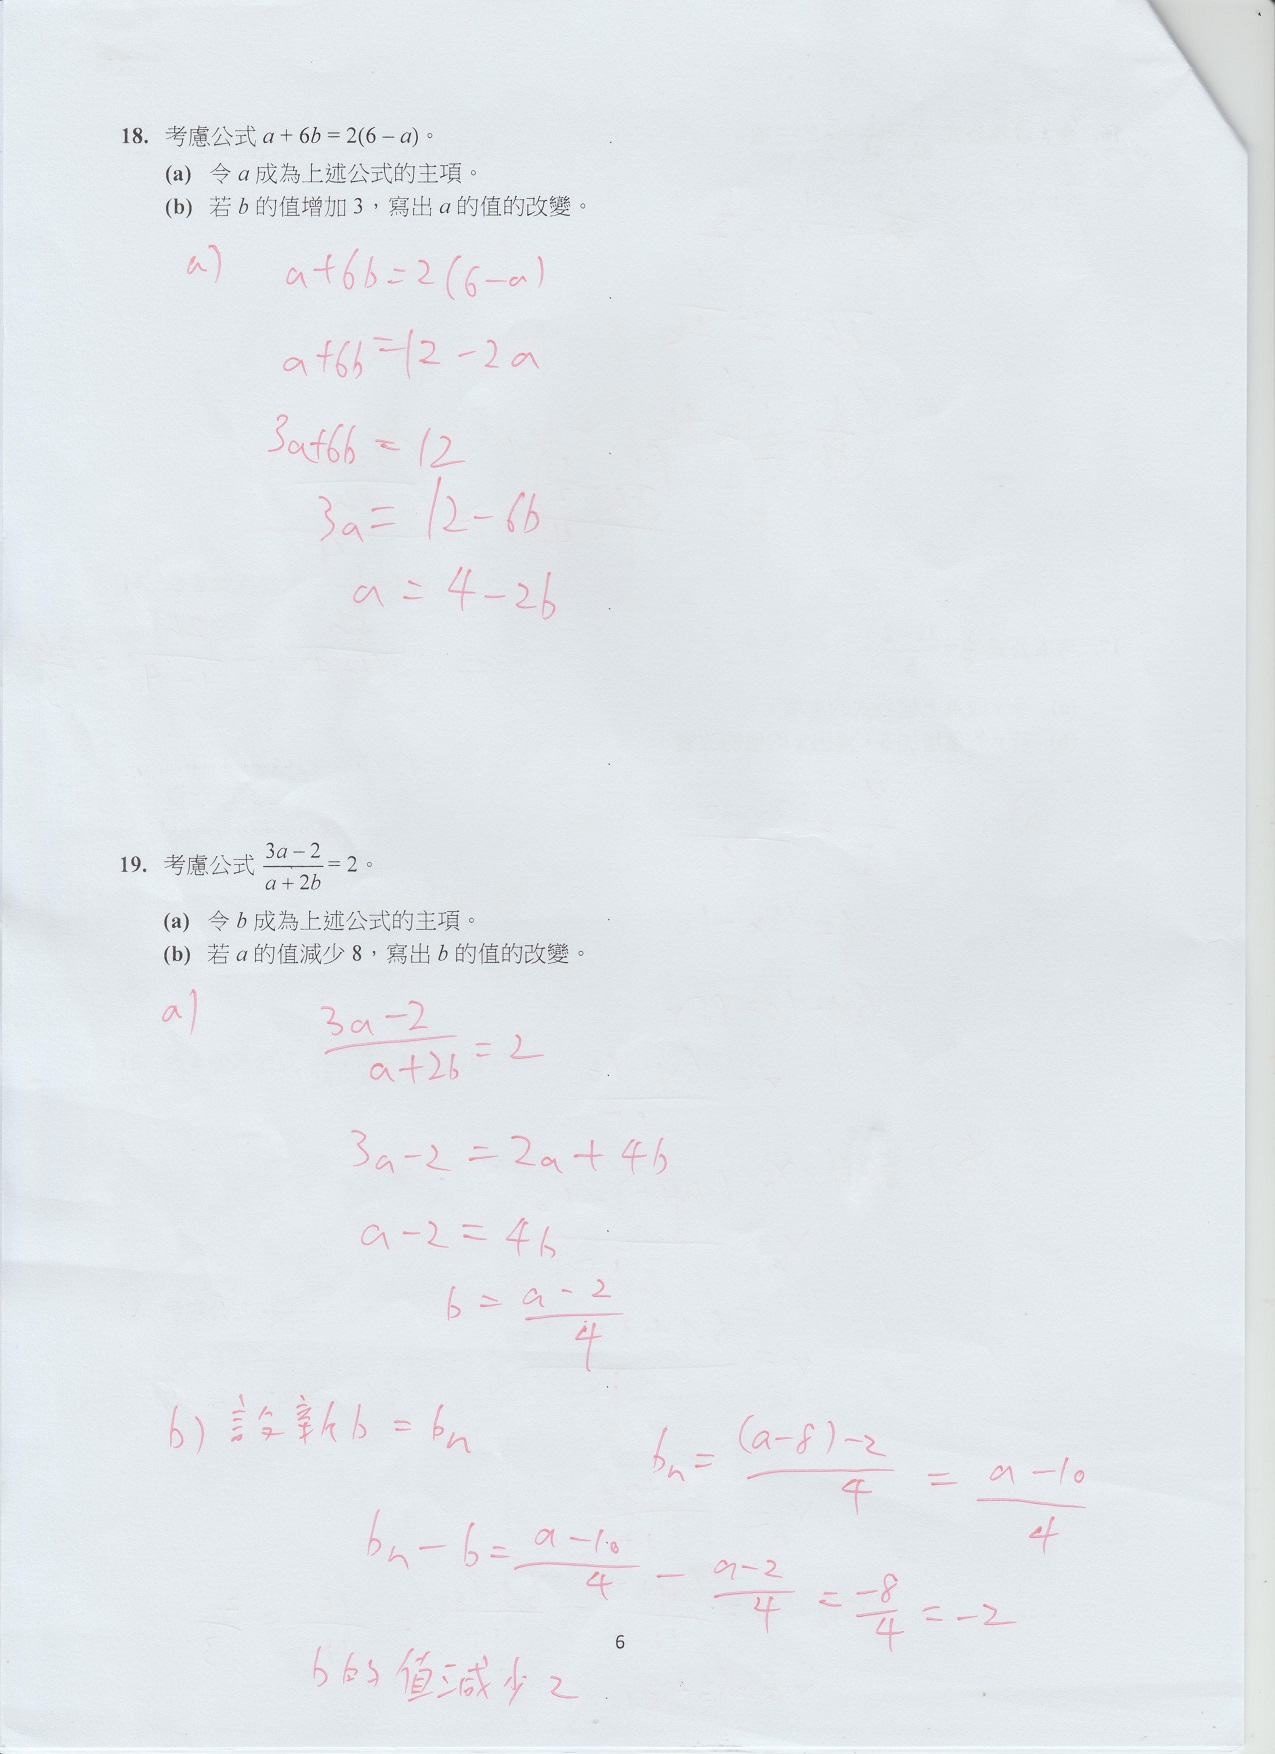 18. 考慮公式 a + 6b = 2(6 – a)。
(a) 令 a 成為上述公式的主項。
(b) 若 b 的值增加 3，寫出 a 的值的改變。
a) a+6b=2(6-a)
a+6b=12-2a
3a+6b=12
3a=12-6b
a=4-2b
19. 考慮公式 (3a – 2)/(a + 2b) = 2。
(a) 令 b 成為上述公式的主項。
(b) 若 a 的值減少 8，寫出 b 的值的改變。
a) (3a-2)/(a+2b)=2
3a-2=2a+4b
a-2=4b
b=(a-2)/4
b) 設新b=bn bn=((a-8)-2)/4=(a-10)/4
bn-b=(a-10)/4-(a-2)/4=-8/4=-2
b的值減少2
6